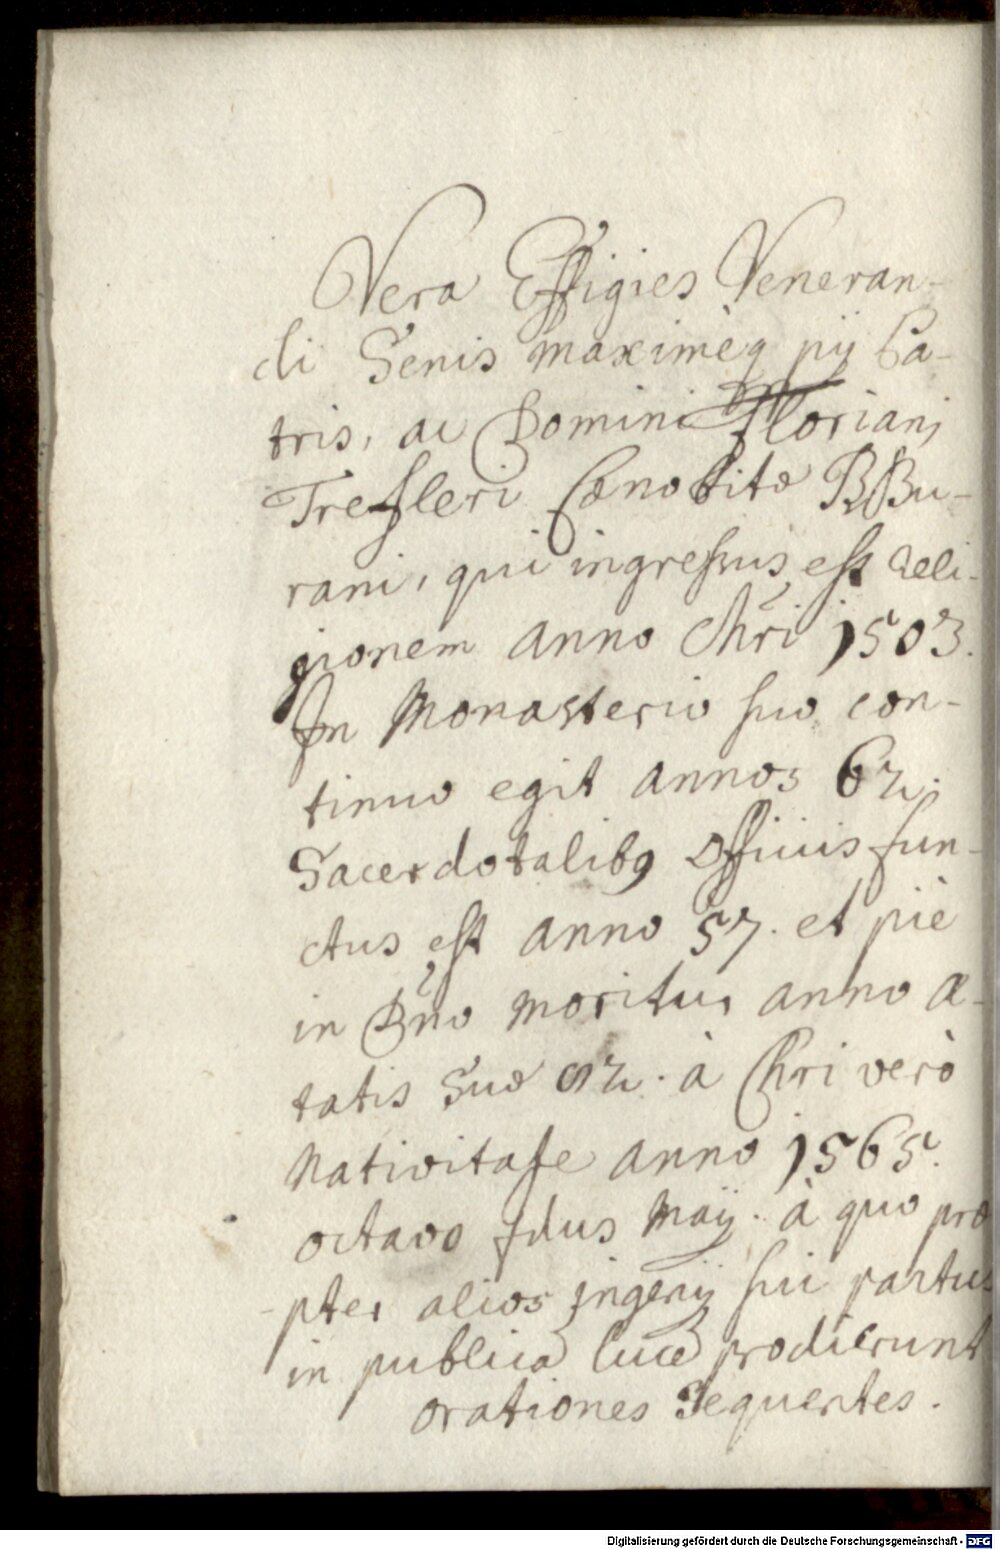 Vera Effigies Veneran-
di Senis maximeq́ pij Pa-
tris, ac Domini Floriani
Trefleri Cœnobitæ BBu-
rani, qui ingressus est Reli-
gionem anno Chri 1503.
In Monasterio suo con-
tinuo egit annos 62.
Sacerdotalibꝯ Officiis fun-
ctus est anno 57. et piè
in Dno moritur anno æ-
tatis Suæ 82. à Chri verò
Nativitate anno 1565.
octavo Idus Maij. à quo præ
pter alios ingenij sui partus
in publicā lucē prodierunt
orationes Sequentes.
Digitalisierung gefördert durch die Deutsche Forschungsgemeinschaft - DFG